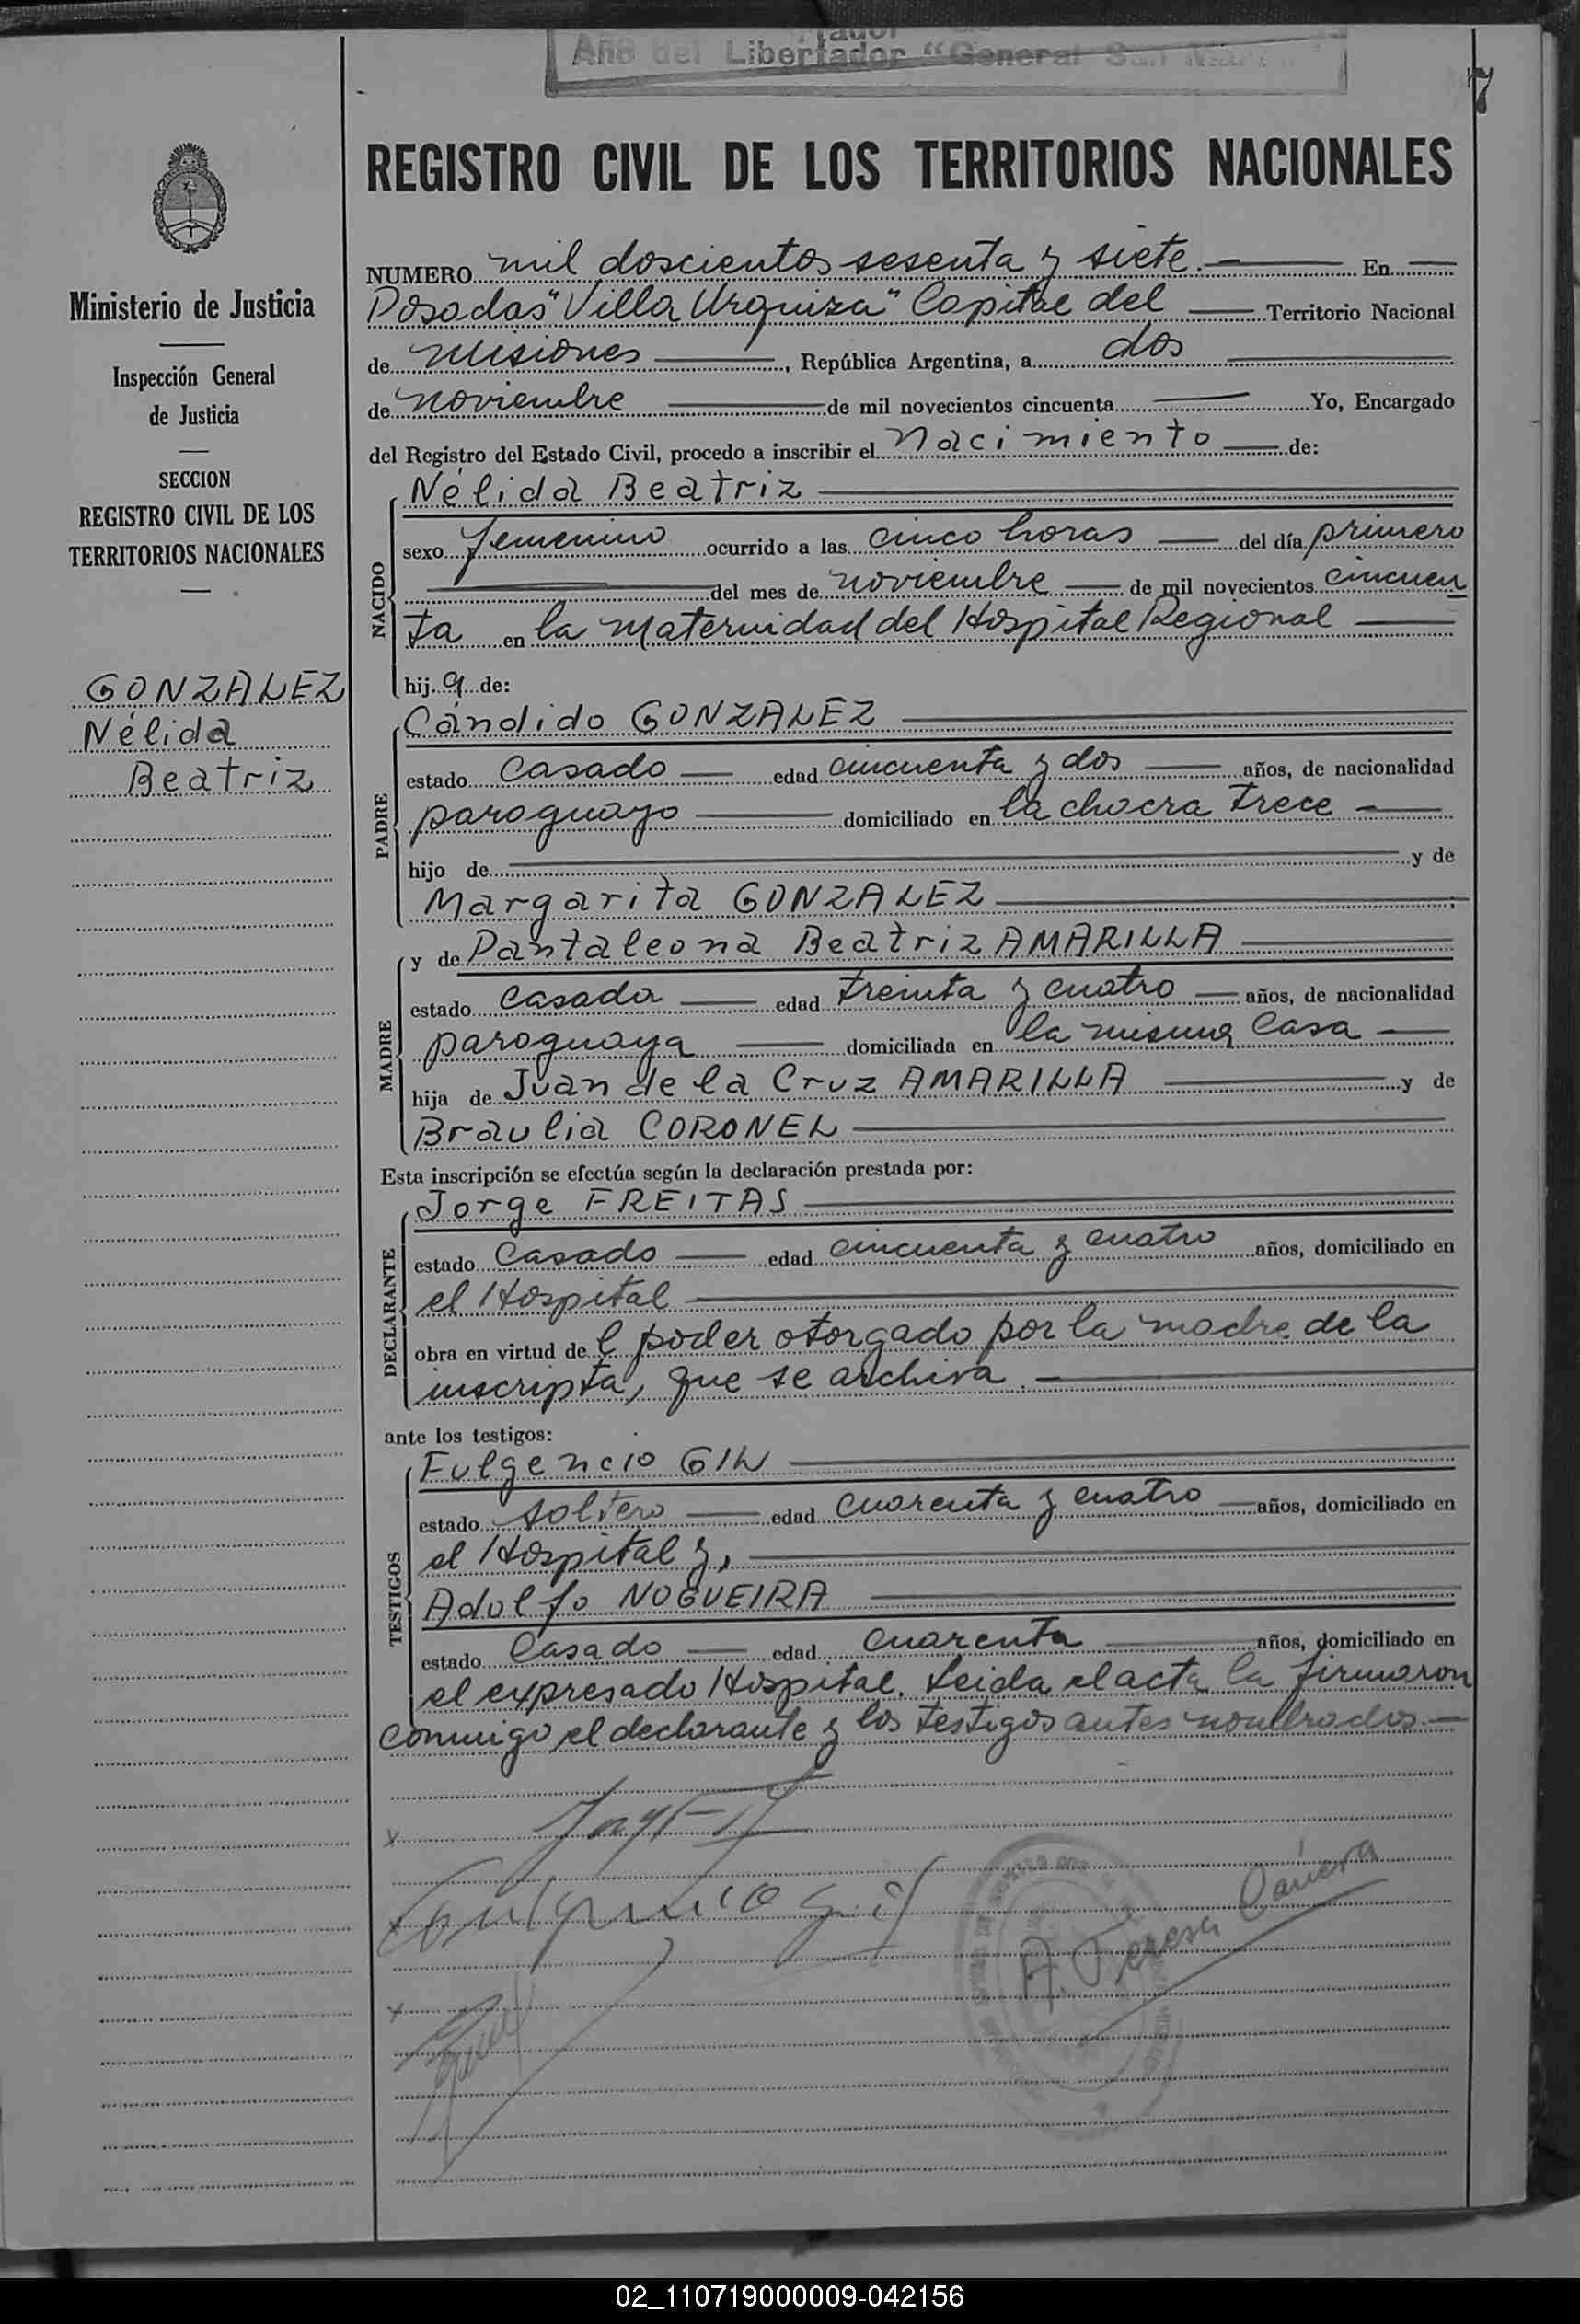 Año del Libertador "General San Mar
7
REGISTRO CIVIL DE LOS TERRITORIOS NACIONALES
Ministerio de Justicia
Inspección General
de Justicia
SECCION
REGISTRO CIVIL DE LOS
TERRITORIOS NACIONALES
GONZALEZ
Nélida
Beatriz
NUMERO mil doscientos sesenta y siete. En
Posadas "Villa Urquiza" Capital del Territorio Nacional
de Misiones, República Argentina, a dos
de noviembre de mil novecientos cincuenta Yo, Encargado
del Registro del Estado Civil, procedo a inscribir el Nacimiento de:
NACIDO
Nélida Beatriz
sexo femenino ocurrido a las cinco horas del día primero
del mes de noviembre de mil novecientos cincuen
ta en la Maternidad del Hospital Regional
hij a de:
PADRE
Cándido GONZALEZ
estado casado edad cincuenta y dos años, de nacionalidad
paraguayo domiciliado en la chacra trece
hijo de y de
Margarita GONZALEZ
MADRE
y de Pantaleona Beatriz AMARILLA
estado casada edad treinta y cuatro años, de nacionalidad
paraguaya domiciliada en la misma casa
hija de Juan de la Cruz AMARILLA y de
Braulia CORONEL
Esta inscripción se efectúa según la declaración prestada por:
DECLARANTE
Jorge FREITAS
estado casado edad cincuenta y cuatro años, domiciliado en
el Hospital
obra en virtud de l poder otorgado por la madre de la
inscripta, que se archiva.
ante los testigos:
TESTIGOS
Fulgencio GIL
estado soltero edad cuarenta y cuatro años, domiciliado en
el Hospital y,
Adolfo NOGUEIRA
estado casado edad cuarenta años, domiciliado en
el expresado Hospital. Leida el acta la firmaron
conmigo el declarante y los testigos antes nombrados.
x
x Fulgencio Gil
x
A. Teresa
02_110719000009-042156